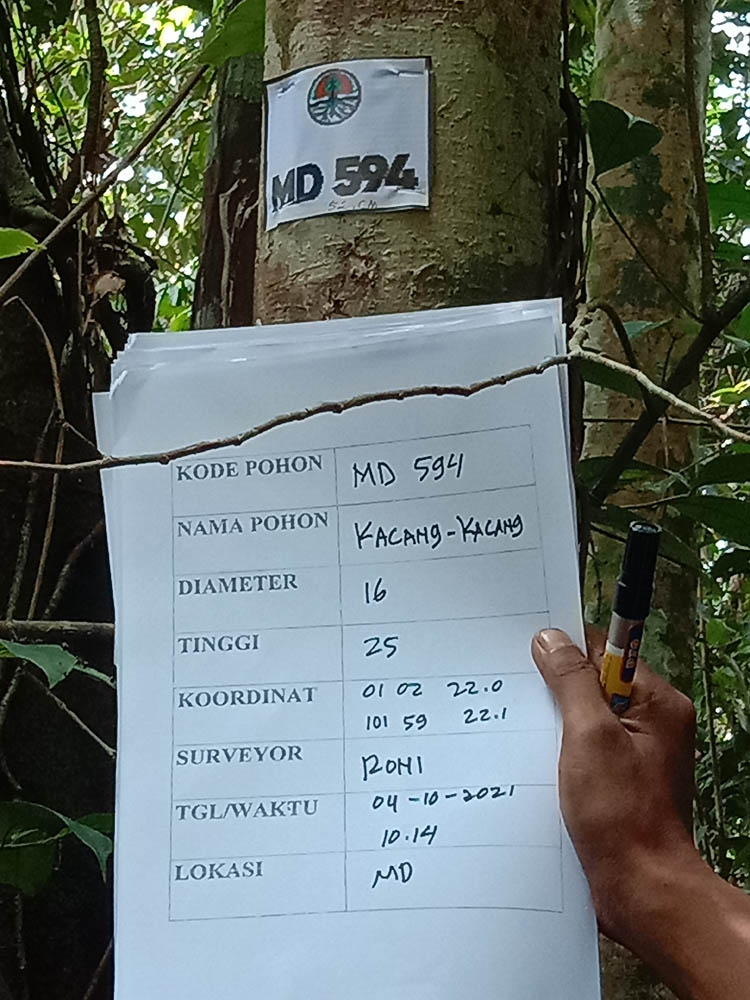 MD 594
KODE POHON MD 594
NAMA POHON KACANG-KACANG
DIAMETER 16
TINGGI 25
KOORDINAT 01 02 22.0
101 59 22.1
SURVEYOR RONI
TGL/WAKTU 04-10-2021
10.14
LOKASI MD